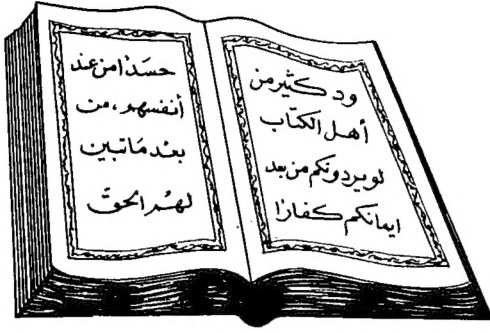 ود كثير من
أهل الكتاب
لو يردونكم من بعد
ايمانكم كفارا
حسدا من عند
أنفسهم، من
بعد ما تبين
لهم الحق